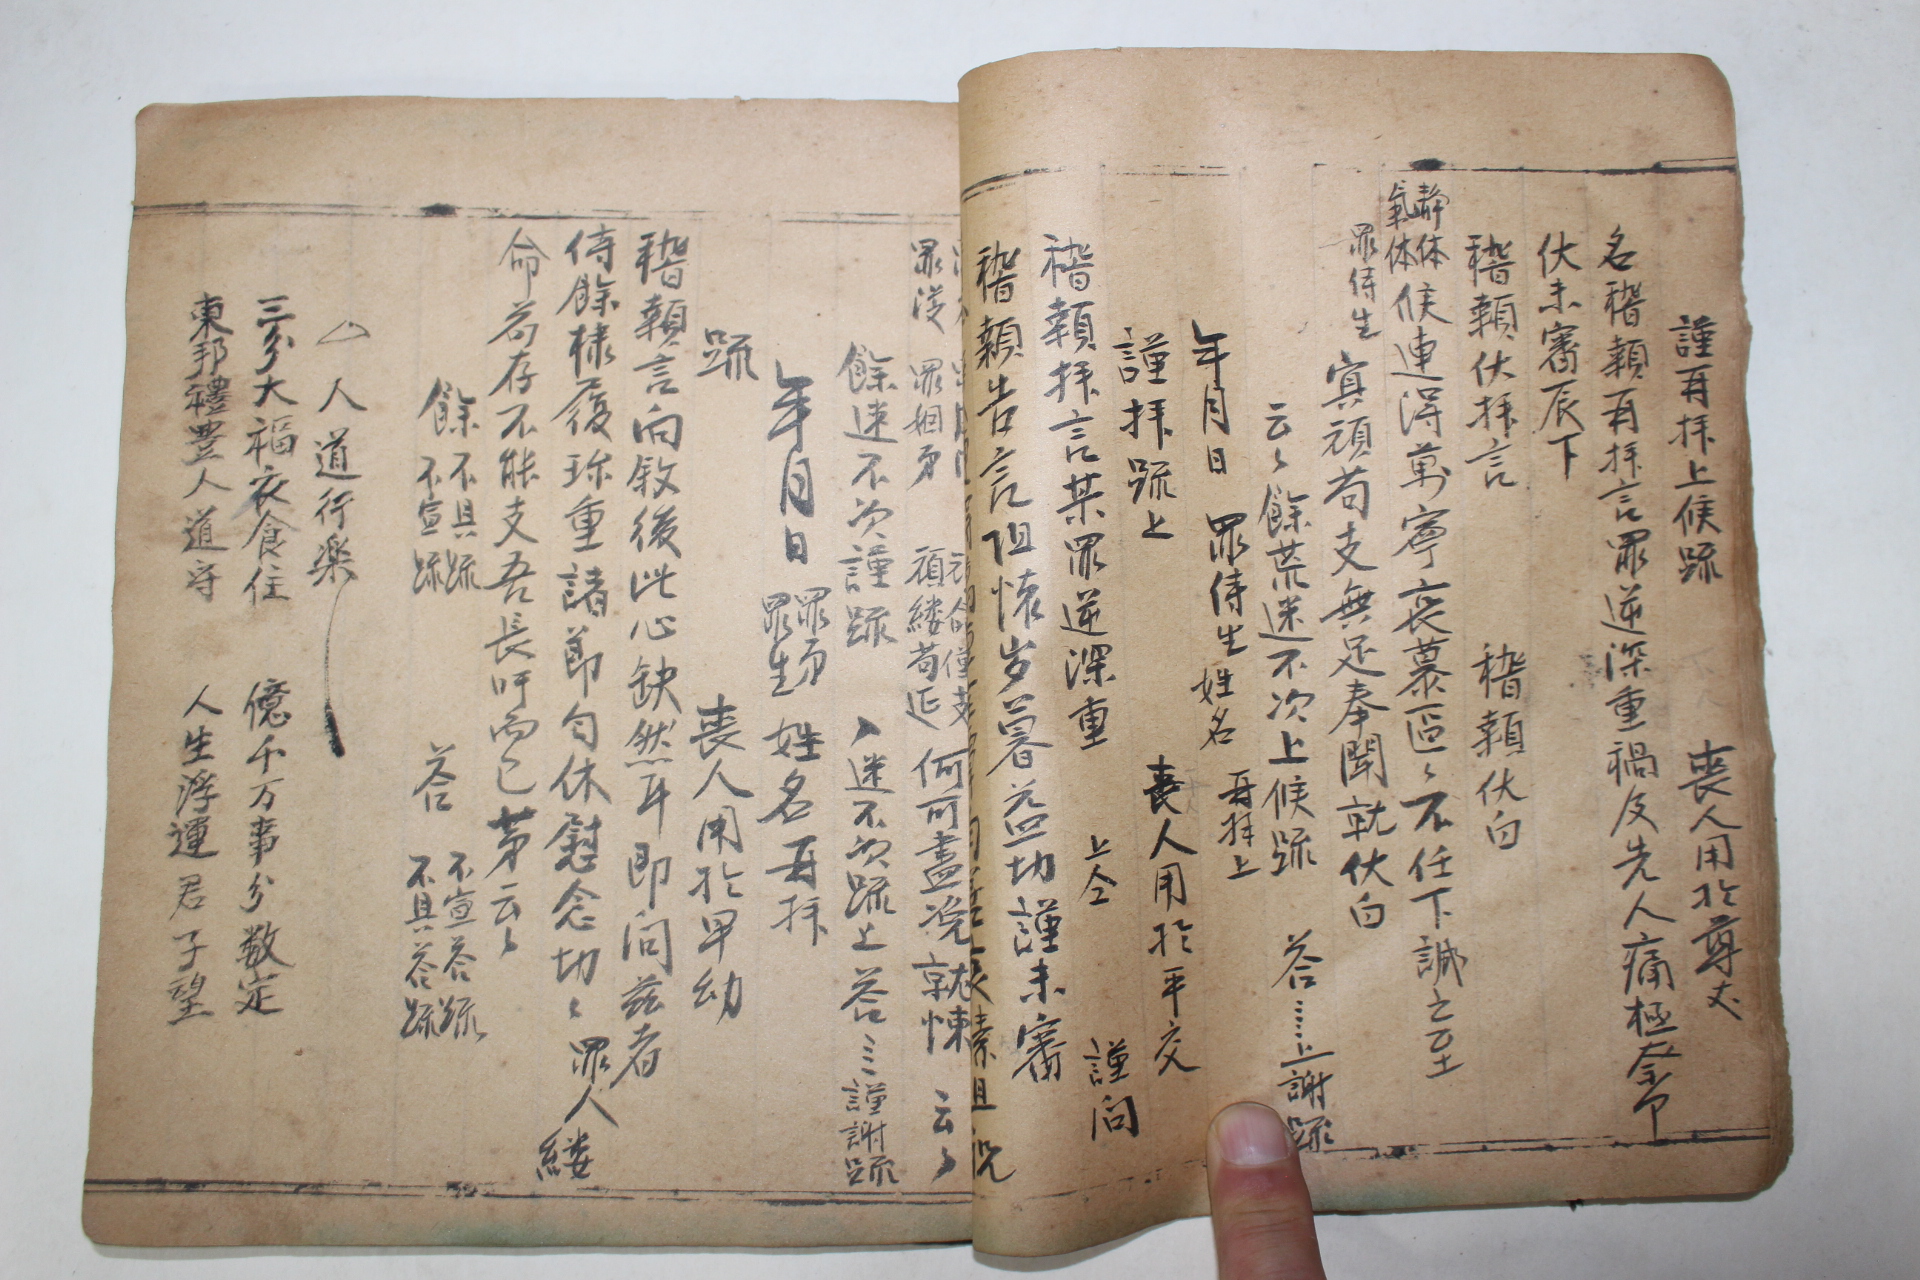 謹再拜上候疏 喪人用於尊丈
名稽顙再拜言罪逆深重禍及先人痛極奈何
伏未審辰下
稽顙伏拜言 稽顙伏白
靜体
氣体
候連淂萬寧哀慕區〻不任下誠之至
罪侍生
寞頑苟支無足奉聞就伏白
云〻餘荒迷不次上候疏 答〻〻上謝疏
年月日 罪侍生 姓名 再拜上
謹拜疏上 喪人用於平交
稽顙拜言某罪逆深重 上仝 謹問
稽顙告言阻懷岁暮益切謹未審
罪侵 罪姻弟 頑縷苟延 何可盡况就悚 云〻
餘迷不次謹疏 〻迷不次疏上答〻〻謹謝疏
年月日 罪弟
罪生
姓名再拜
疏 喪人用於卑幼
稽顙言向敘後此心缺然耳即问兹者
侍餘樣履珎重諸節勻休慰念切〻罪人縷
命苟存不能支吾長吁而已茅云〻
餘 不具疏
不宣疏
答 不宣答疏
不具答疏
△ 人道行樂
三分大福衣食住 億千万事分数定
東邦禮豊人道守 人生浮運君子望